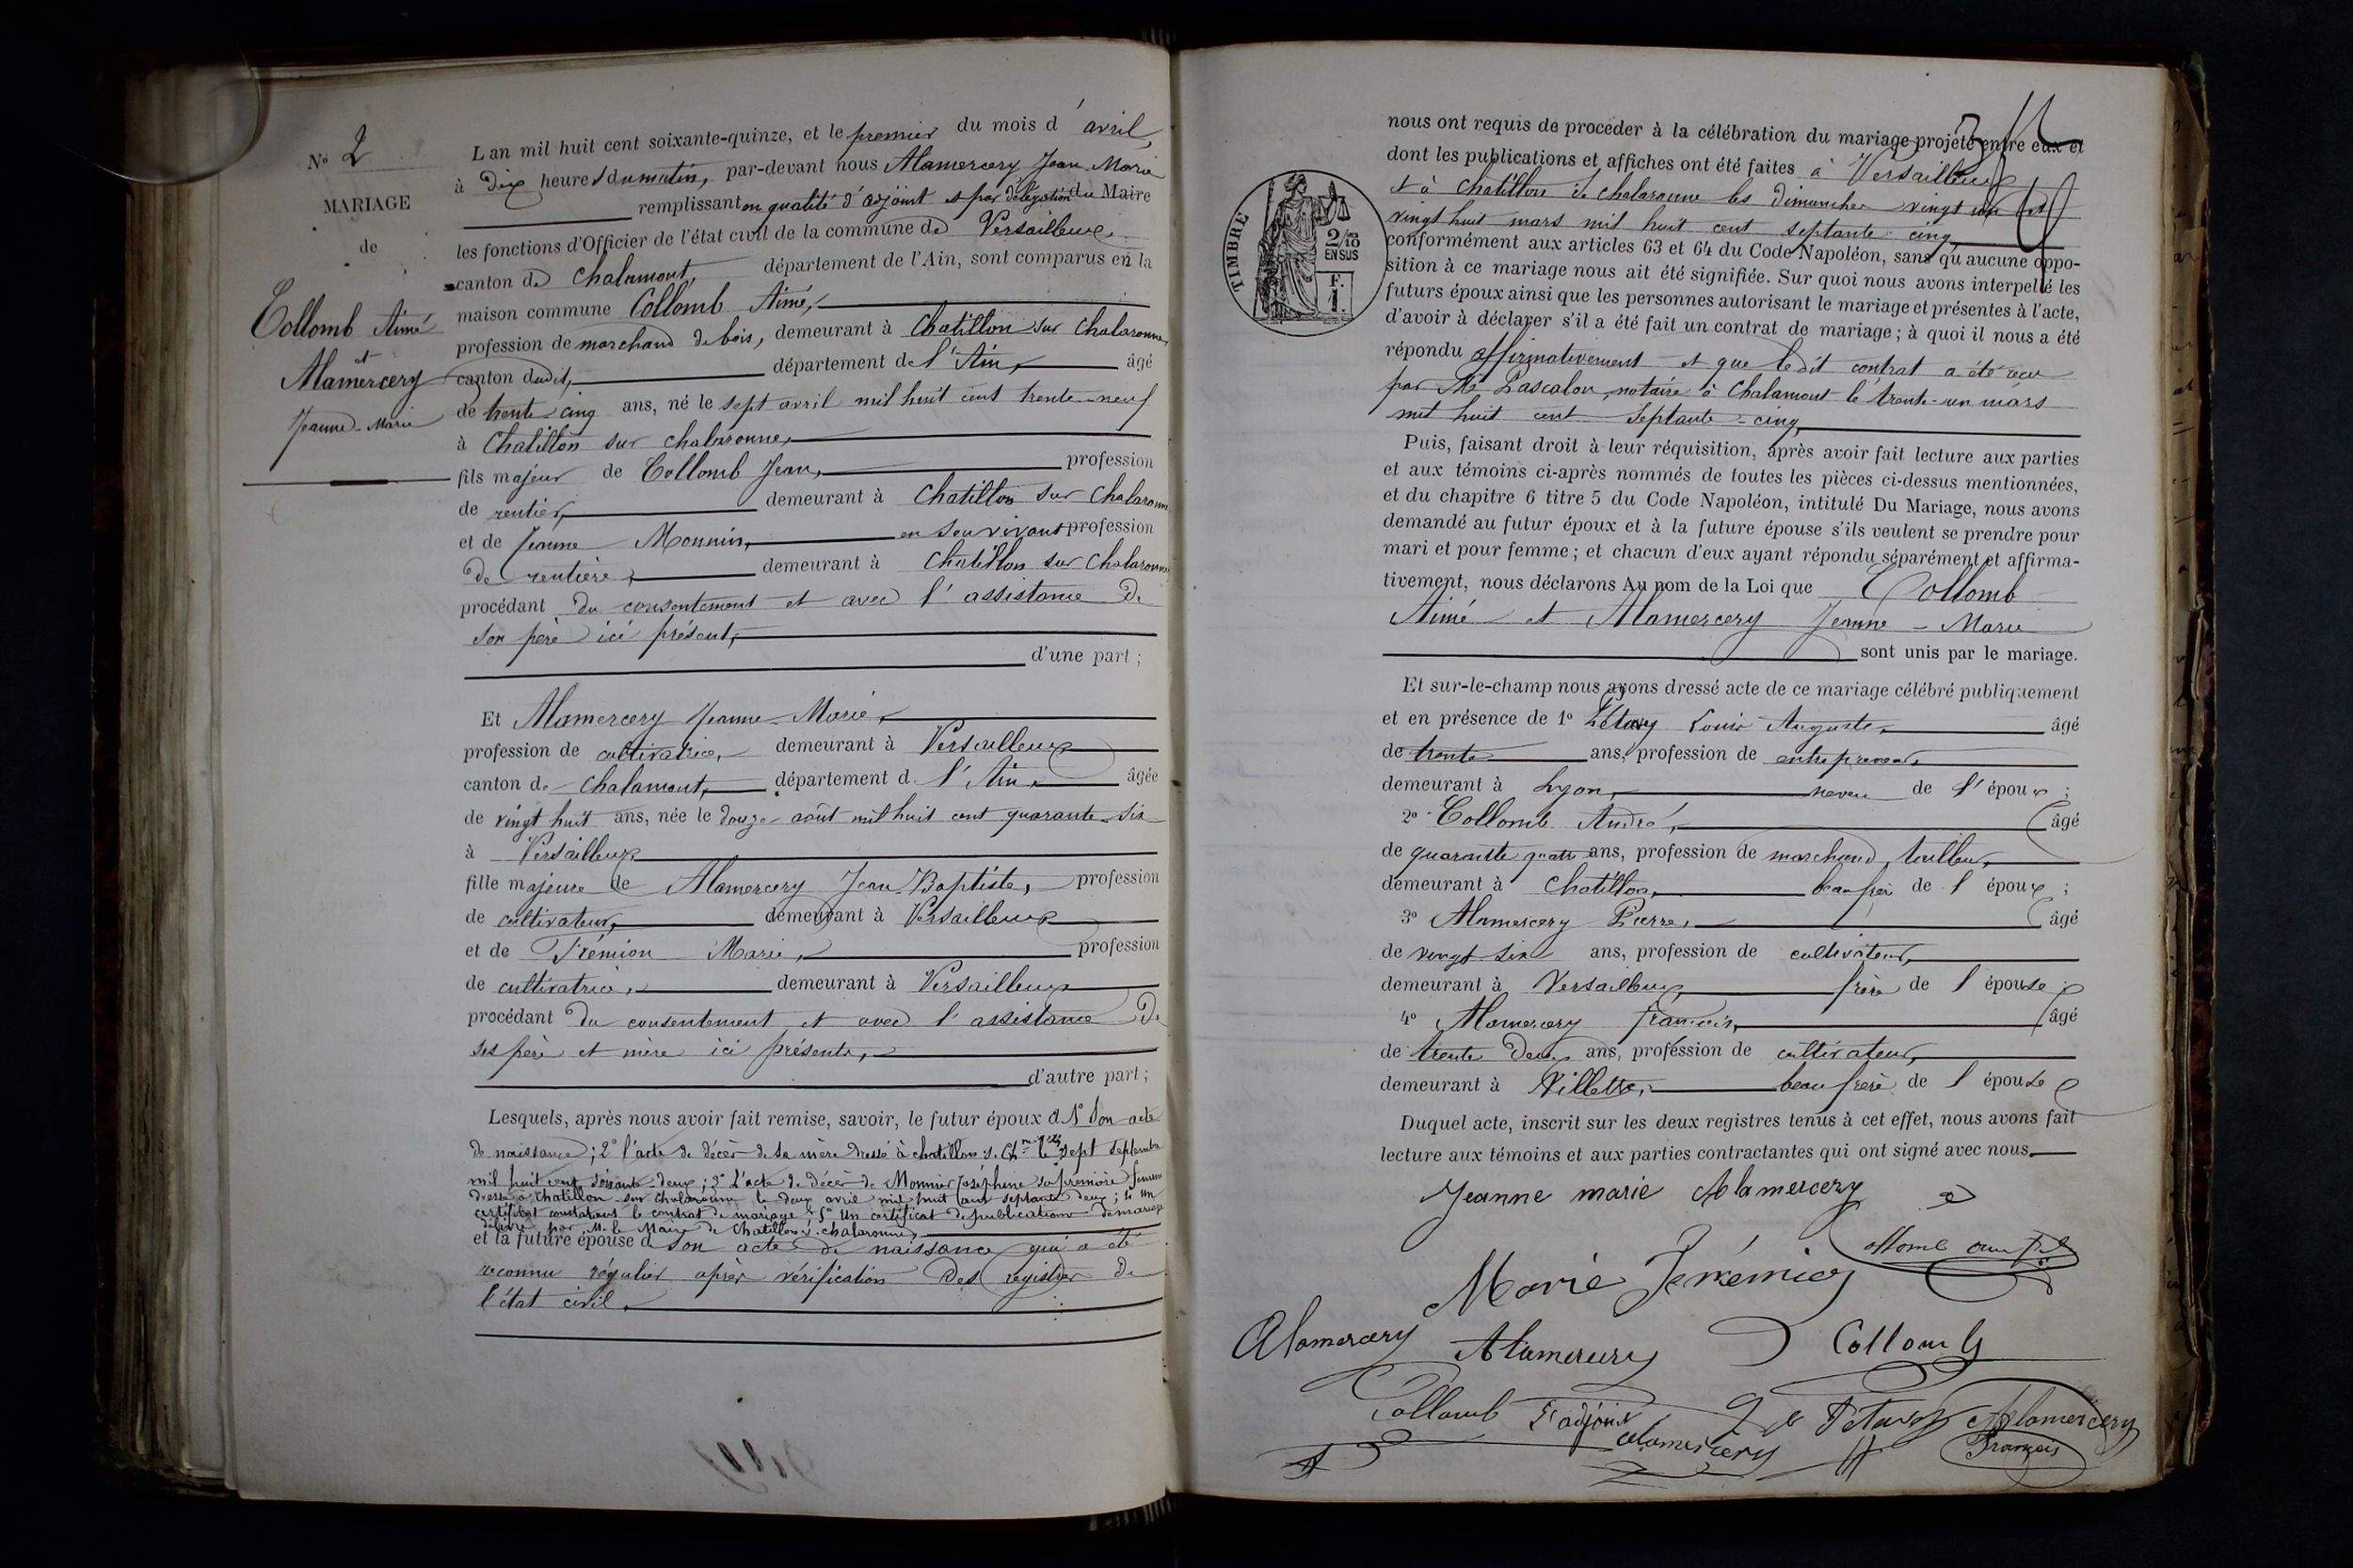 N° 2
MARIAGE
de
Collomb Aimé
et
Alamercery
Jeanne-Marie
L'an mil huit cent soixante-quinze, et le premier du mois d'avril,
à dix heures du matin, par-devant nous Alamercery Jean Marie
remplissant en qualité d'adjoint et par délégation du Maire
les fonctions d'Officier de l'état civil de la commune de Versailleux
canton de Chalamont, département de l'Ain, sont comparus en la
maison commune Collomb Aimé,
profession de marchand de bois, demeurant à Chatillon sur Chalaronne,
canton dudit, département de l'Ain, âgé
de trente-cinq ans, né le sept avril mil huit cent trente-neuf
à Chatillon sur Chalaronne,
fils majeur de Collomb Jean, profession
de rentier, demeurant à Chatillon sur Chalaronne
et de Jeanne Monnin, en son vivant profession
de rentière, demeurant à Chatillon sur Chalaronne
procédant du consentement et avec l'assistance de
son père ici présent,
d'une part;
Et Alamercery Jeanne-Marie,
profession de cultivatrice, demeurant à Versailleux
canton de Chalamont, département de l'Ain, âgée
de vingt huit ans, née le douze août mil huit cent quarante-six
à Versailleux
fille majeure de Alamercery Jean-Baptiste, profession
de cultivateur, demeurant à Versailleux
et de Frémion Marie, profession
de cultivatrice, demeurant à Versailleux
procédant du consentement et avec l'assistance de
ses père et mère ici présents,
d'autre part;
Lesquels, après nous avoir fait remise, savoir, le futur époux d 1° son acte
de naissance; 2° l'acte de décès de sa mère dressé à chatillon s. Ch.ne le sept septembre
mil huit cent soixante-deux; 3° L'acte de décès de Monnier Joséphine sa première femme
dressé à Chatillon-sur Chalaronne le deux avril mil huit cent septante deux; 4° un
certificat constatant le contrat de mariage & 5° Un certificat de publication de mariage
délivré par M. le Maire de Chatillon s. chalaronne,
et la future épouse de son acte de naissance qui a été
reconnu régulier après vérification des registres de
l'état civil.
nous ont requis de procéder à la célébration du mariage projeté entre eux et
dont les publications et affiches ont été faites à Versailleux
et à Chatillon s. chalaronne les dimanches vingt un et
vingt huit mars mil huit cent septante-cinq
conformément aux articles 63 et 64 du Code Napoléon, sans qu'aucune oppo-
sition à ce mariage nous ait été signifiée. Sur quoi nous avons interpellé les
futurs époux ainsi que les personnes autorisant le mariage et présentes à l'acte,
d'avoir à déclarer s'il a été fait un contrat de mariage; à quoi il nous a été
répondu affirmativement et que ledit contrat a été reçu
par Me Pascalon, notaire à Chalamont le trente-un mars
mil huit cent septante-cinq,
TIMBRE
2/10
EN SUS
F.
1.
Puis, faisant droit à leur réquisition, après avoir fait lecture aux parties
et aux témoins ci-après nommés de toutes les pièces ci-dessus mentionnées,
et du chapitre 6 titre 5 du Code Napoléon, intitulé Du Mariage, nous avons
demandé au futur époux et à la future épouse s'ils veulent se prendre pour
mari et pour femme; et chacun d'eux ayant répondu séparément et affirma-
tivement, nous déclarons Au nom de la Loi que Collomb
Aimé et Alamercery Jeanne-Marie
sont unis par le mariage.
Et sur-le-champ nous avons dressé acte de ce mariage célébré publiquement
et en présence de 1° Louis Auguste, âgé
de trente ans, profession de entrepreneur,
demeurant à Lyon, neveu de l'époux;
2° Collomb André, âgé
de quarante quatre ans, profession de marchand tailleur,
demeurant à Chatillon, beau frère de l'époux;
3° Alamercery Pierre, âgé
de vingt six ans, profession de cultivateur,
demeurant à Versailleux, frère de l'épouse;
4° Alamercery françois, âgé
de trente deux ans, profession de cultivateur,
demeurant à Villette, beau frère de l'épouse
Duquel acte, inscrit sur les deux registres tenus à cet effet, nous avons fait
lecture aux témoins et aux parties contractantes qui ont signé avec nous.
Jeanne marie Alamercery
Collomb
Marie
Alamercery Alamercery Collomb
Collomb L'adjoint Alamercery
Alamercery
François